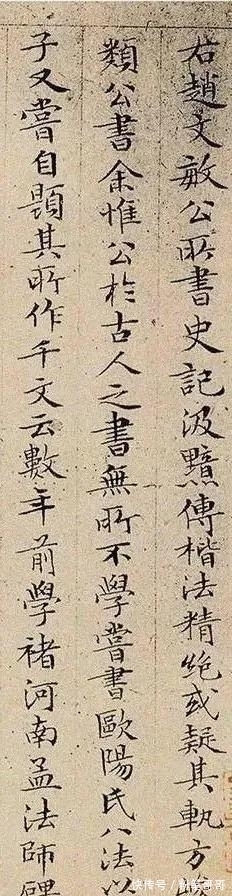 右趙文敏公所書史記汲黯傳楷法精絕或疑其軌方
類公書余惟公於古人之書無所不學嘗書歐陽氏八法以
子又嘗自題其所作千文云數年前學褚河南孟法師碑